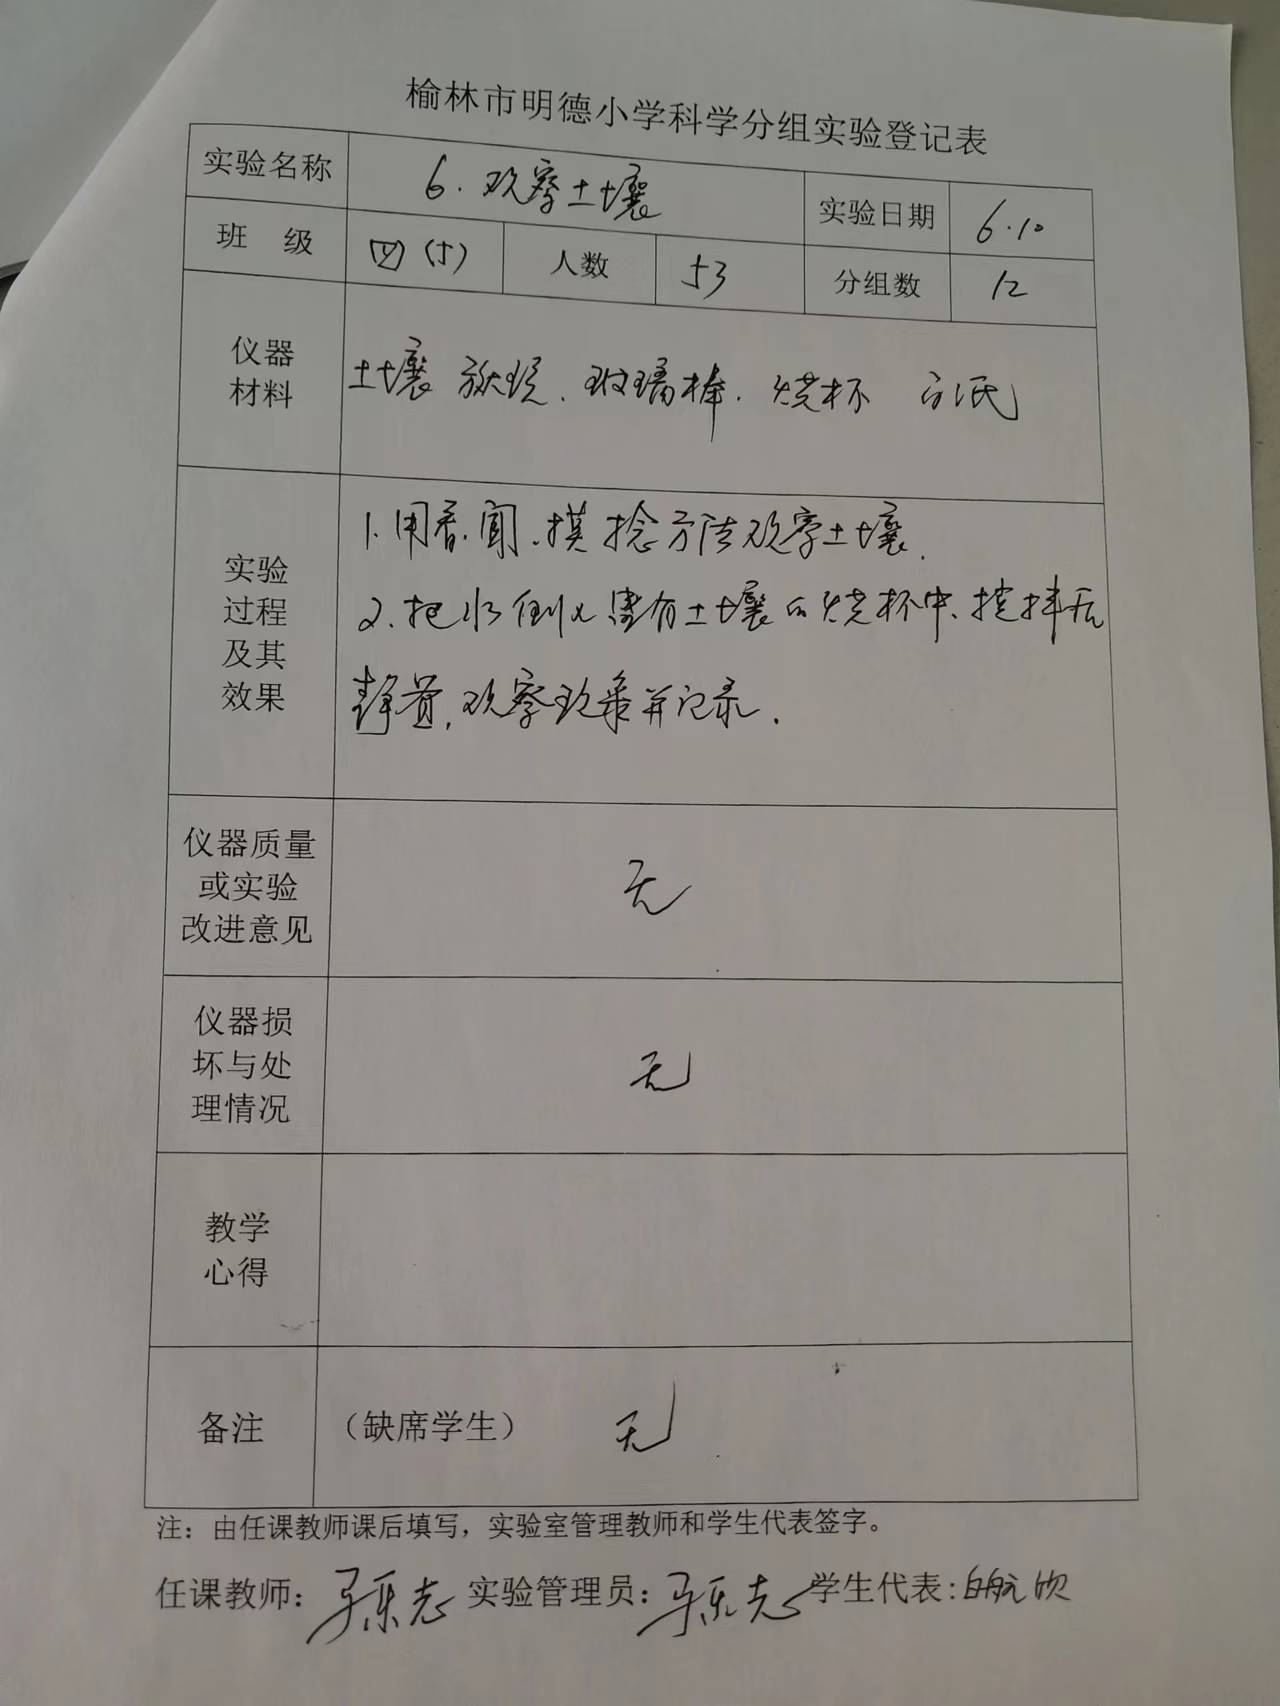 榆林市明德小学科学分组实验登记表
实验名称 6.观察土壤 实验日期 6.10
班 级 四(5) 人数 53 分组数 12
仪器
材料
土壤 放大镜、玻璃棒. 烧杯
实验
过程
及其
效果
1.用看.闻.摸 捻方法观察土壤.
2.把水倒入装有土壤的烧杯中.搅拌后
静置,观察现象并记录.
仪器质量
或实验
改进意见
无
仪器损
坏与处
理情况
无
教学
心得
备注 (缺席学生) 无
注：由任课教师课后填写，实验室管理教师和学生代表签字。
任课教师: 实验管理员: 学生代表: